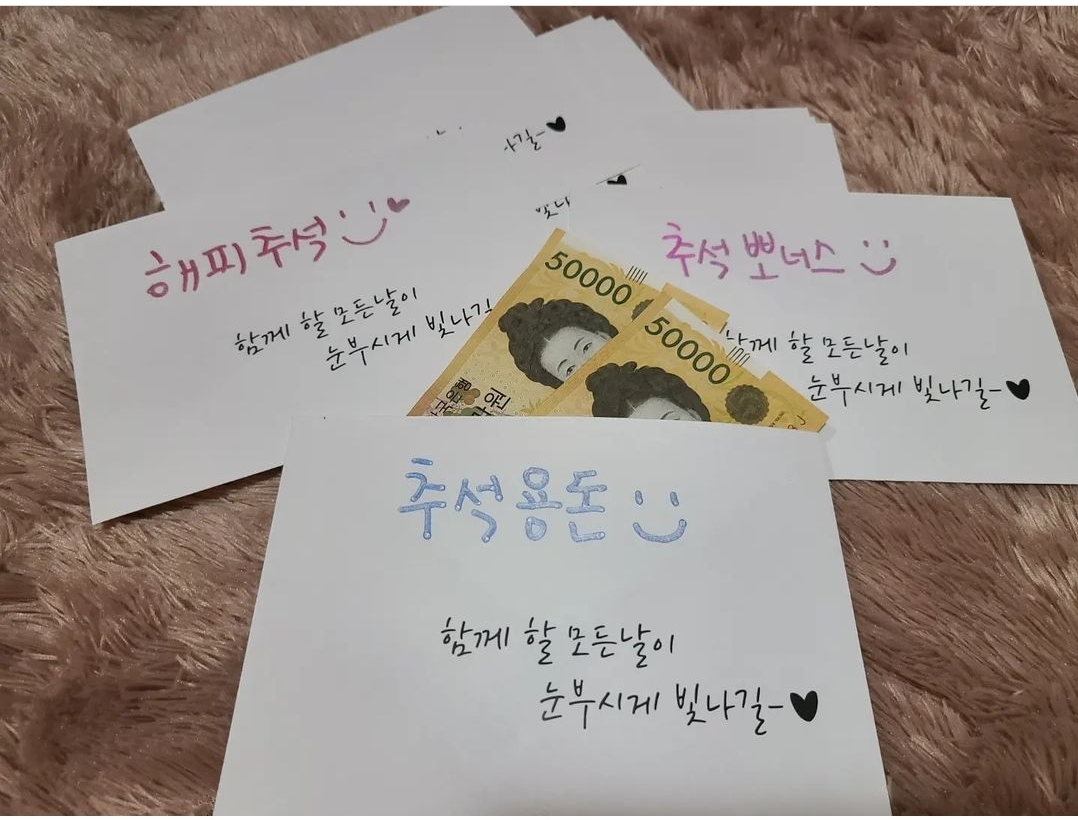 나길-♥
빛나
해피추석 :)♥
함께 할 모든날이
눈부시게 빛나길
추석 뽀너스 :)
함께 할 모든날이
눈부시게 빛나길-♥
50000
50000
추석용돈 :)
함께 할 모든날이
눈부시게 빛나길-♥